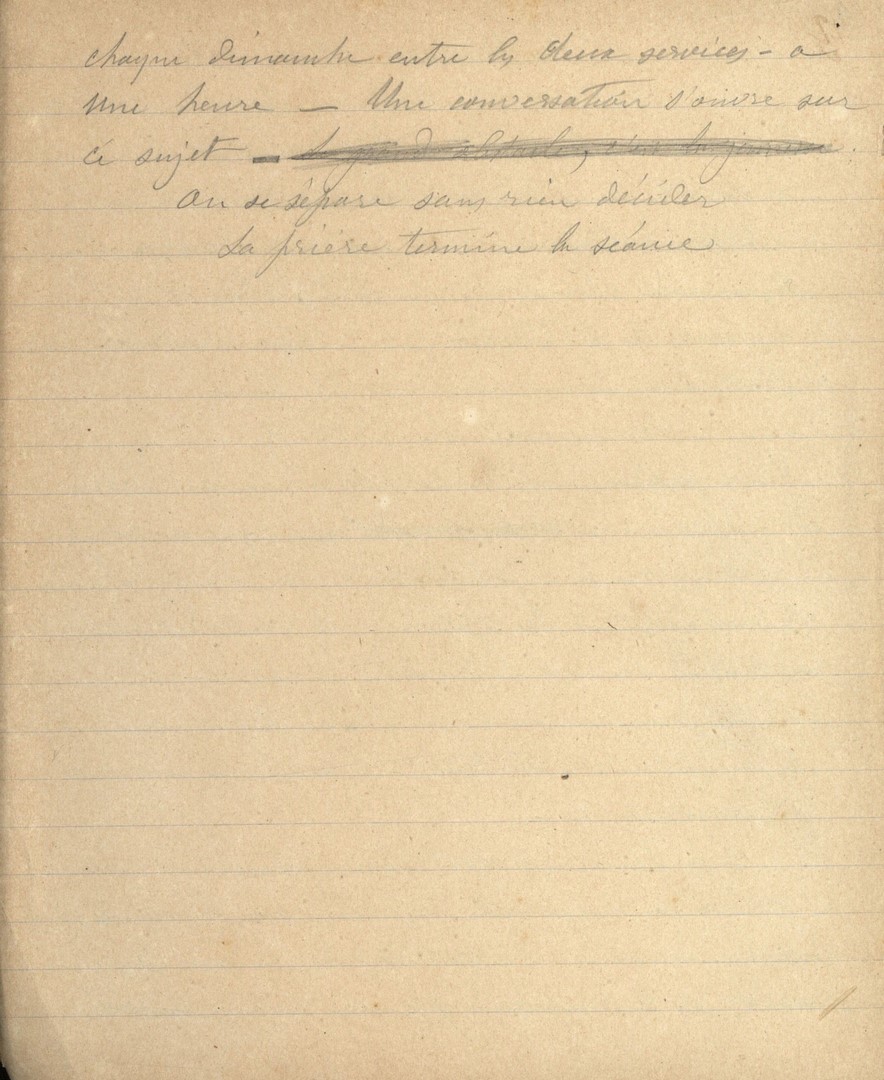 chaque dimanche entre les deux services - a
une heure — Une conversation s'ouvre sur
ce sujet -
On se sépare sans rien décider
La prière termine la séance